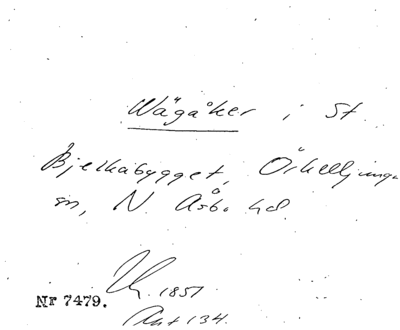 Wägåker i St.
Bjelkabygget, Örkelljunga
sn, N. Åsbo hd.
1851
Nr 7479.
Akt 134.